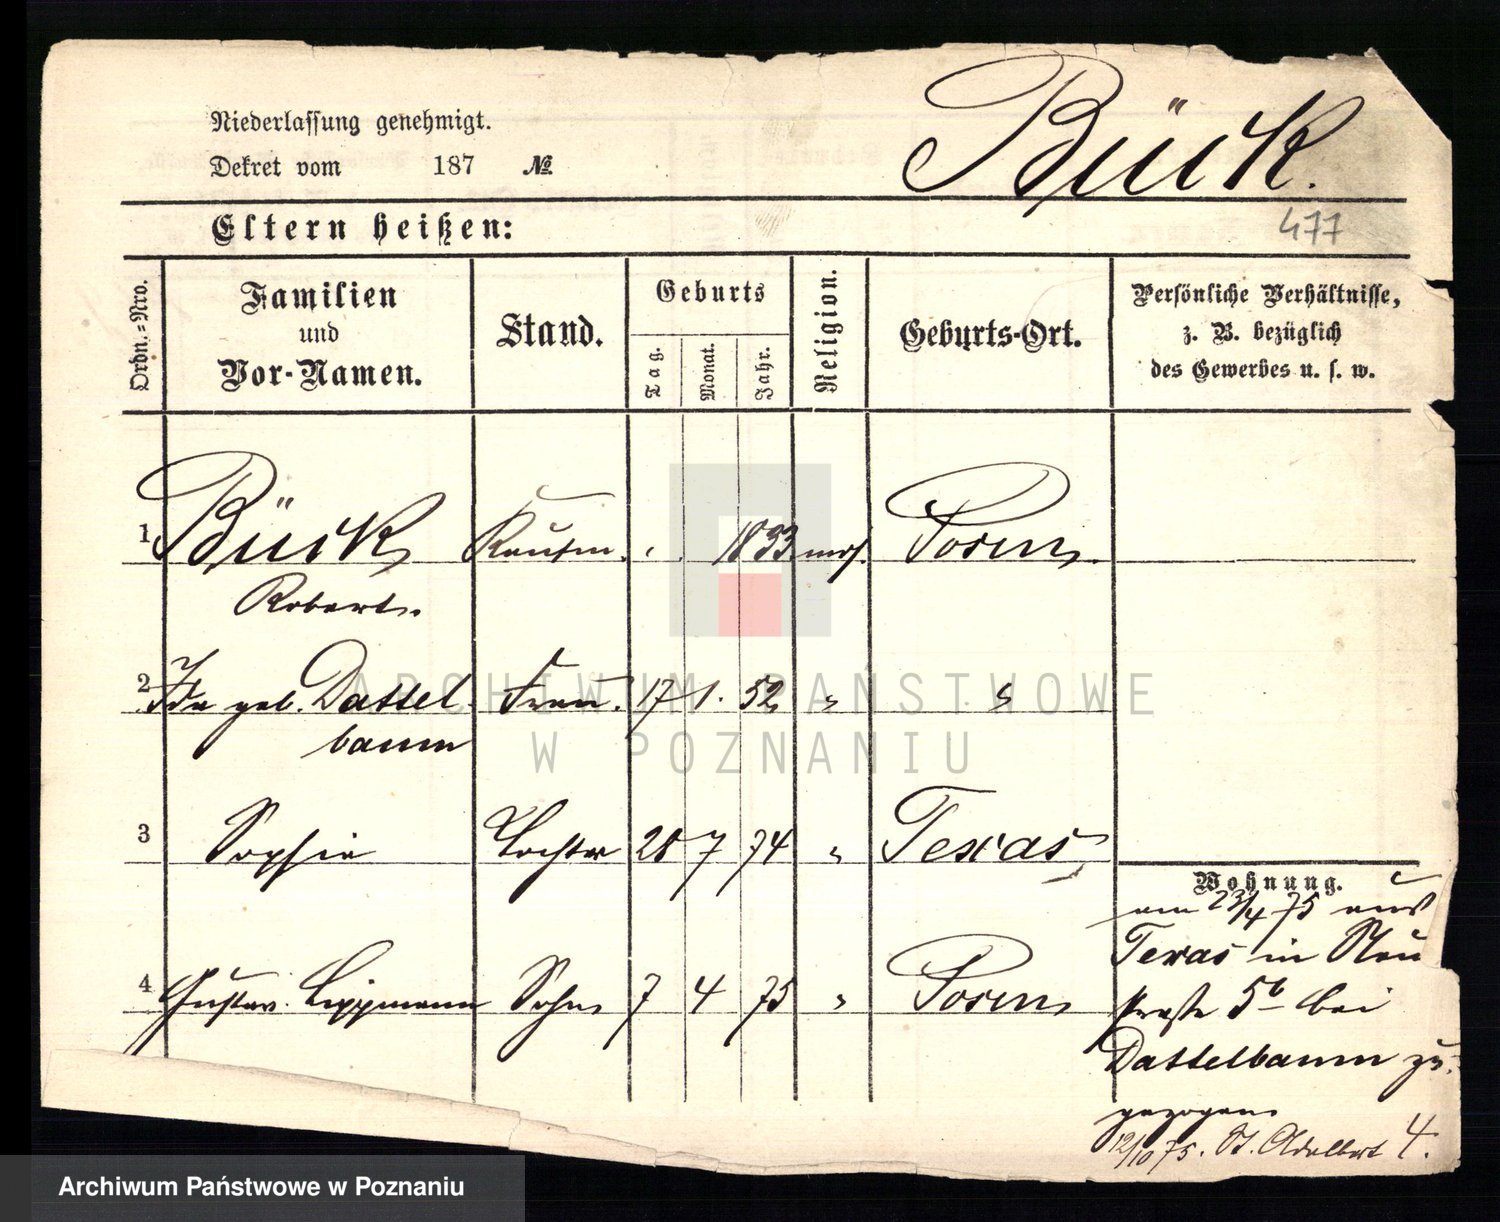 Bück.
Niederlassung genehmigt.
Dekret vom 187 №
477
Eltern heißen:
Ordn.=Nro.
Familien
und
Vor-Namen.
Stand.
Geburts
Tag.
Monat.
Jahr.
Religion.
Geburts-Ort.
Persönliche Verhältnisse,
z. B. bezüglich
des Gewerbes u. s. w.
1 Bück Kaufm. 1833 mos. Posen.
Robert.
2 Ida geb. Dattel Frau. 17 1. 52 " "
baum
3 Sophie Tochter 28 7 74 " Texas
4 Gustav. Lippmann Sohn 7 4 75 " Posen
Wohnung.
am 23/4 75 aus
Texas in Neu
straße 5b bei
Dattelbaum zu
gezogen
12/10 75. St. Adalbert 4.
ARCHIWUM PAŃSTWOWE
W POZNANIU
Archiwum Państwowe w Poznaniu